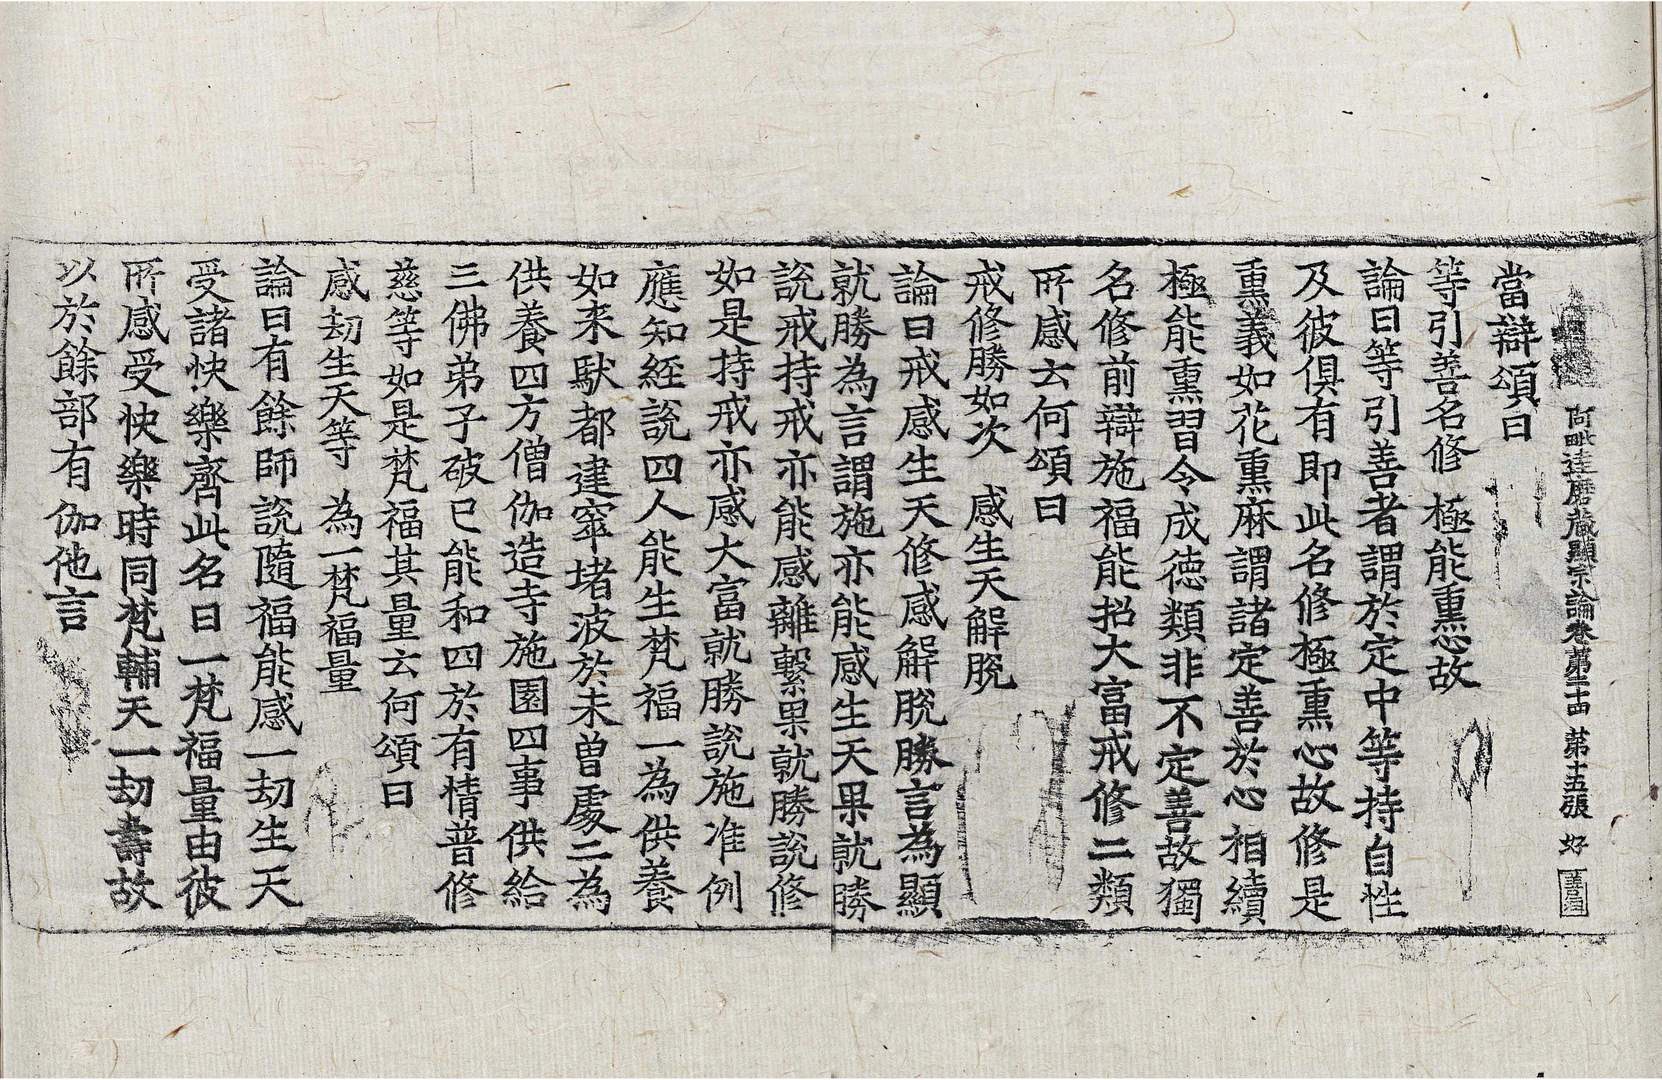 阿毗達磨藏顯宗論卷第二十四 第十五張 好
當辯頌曰
等引善名修 極能熏心故
論曰等引善者謂於定中等持自性
及彼俱有即此名修極熏心故修是
熏義如花熏麻謂諸定善於心相續
極能熏習令成徳類非不定善故獨
名修前辯施福能招大富戒修二類
所感云何頌曰
戒修勝如次 感生天解脫
論曰戒感生天修感解脫勝言為顯
就勝為言謂施亦能感生天果就勝
說戒持戒亦能感離繫果就勝說修
如是持戒亦感大富就勝說施准例
應知經說四人能生梵福一為供養
如来馱都建窣堵波於未曾處二為
供養四方僧伽造寺施園四事供給
三佛弟子破已能和四於有情普修
慈等如是梵福其量云何頌曰
感劫生天等 為一梵福量
論曰有餘師說隨福能感一劫生天
受諸快樂齊此名曰一梵福量由彼
所感受快樂時同梵輔天一劫壽故
以於餘部有伽他言